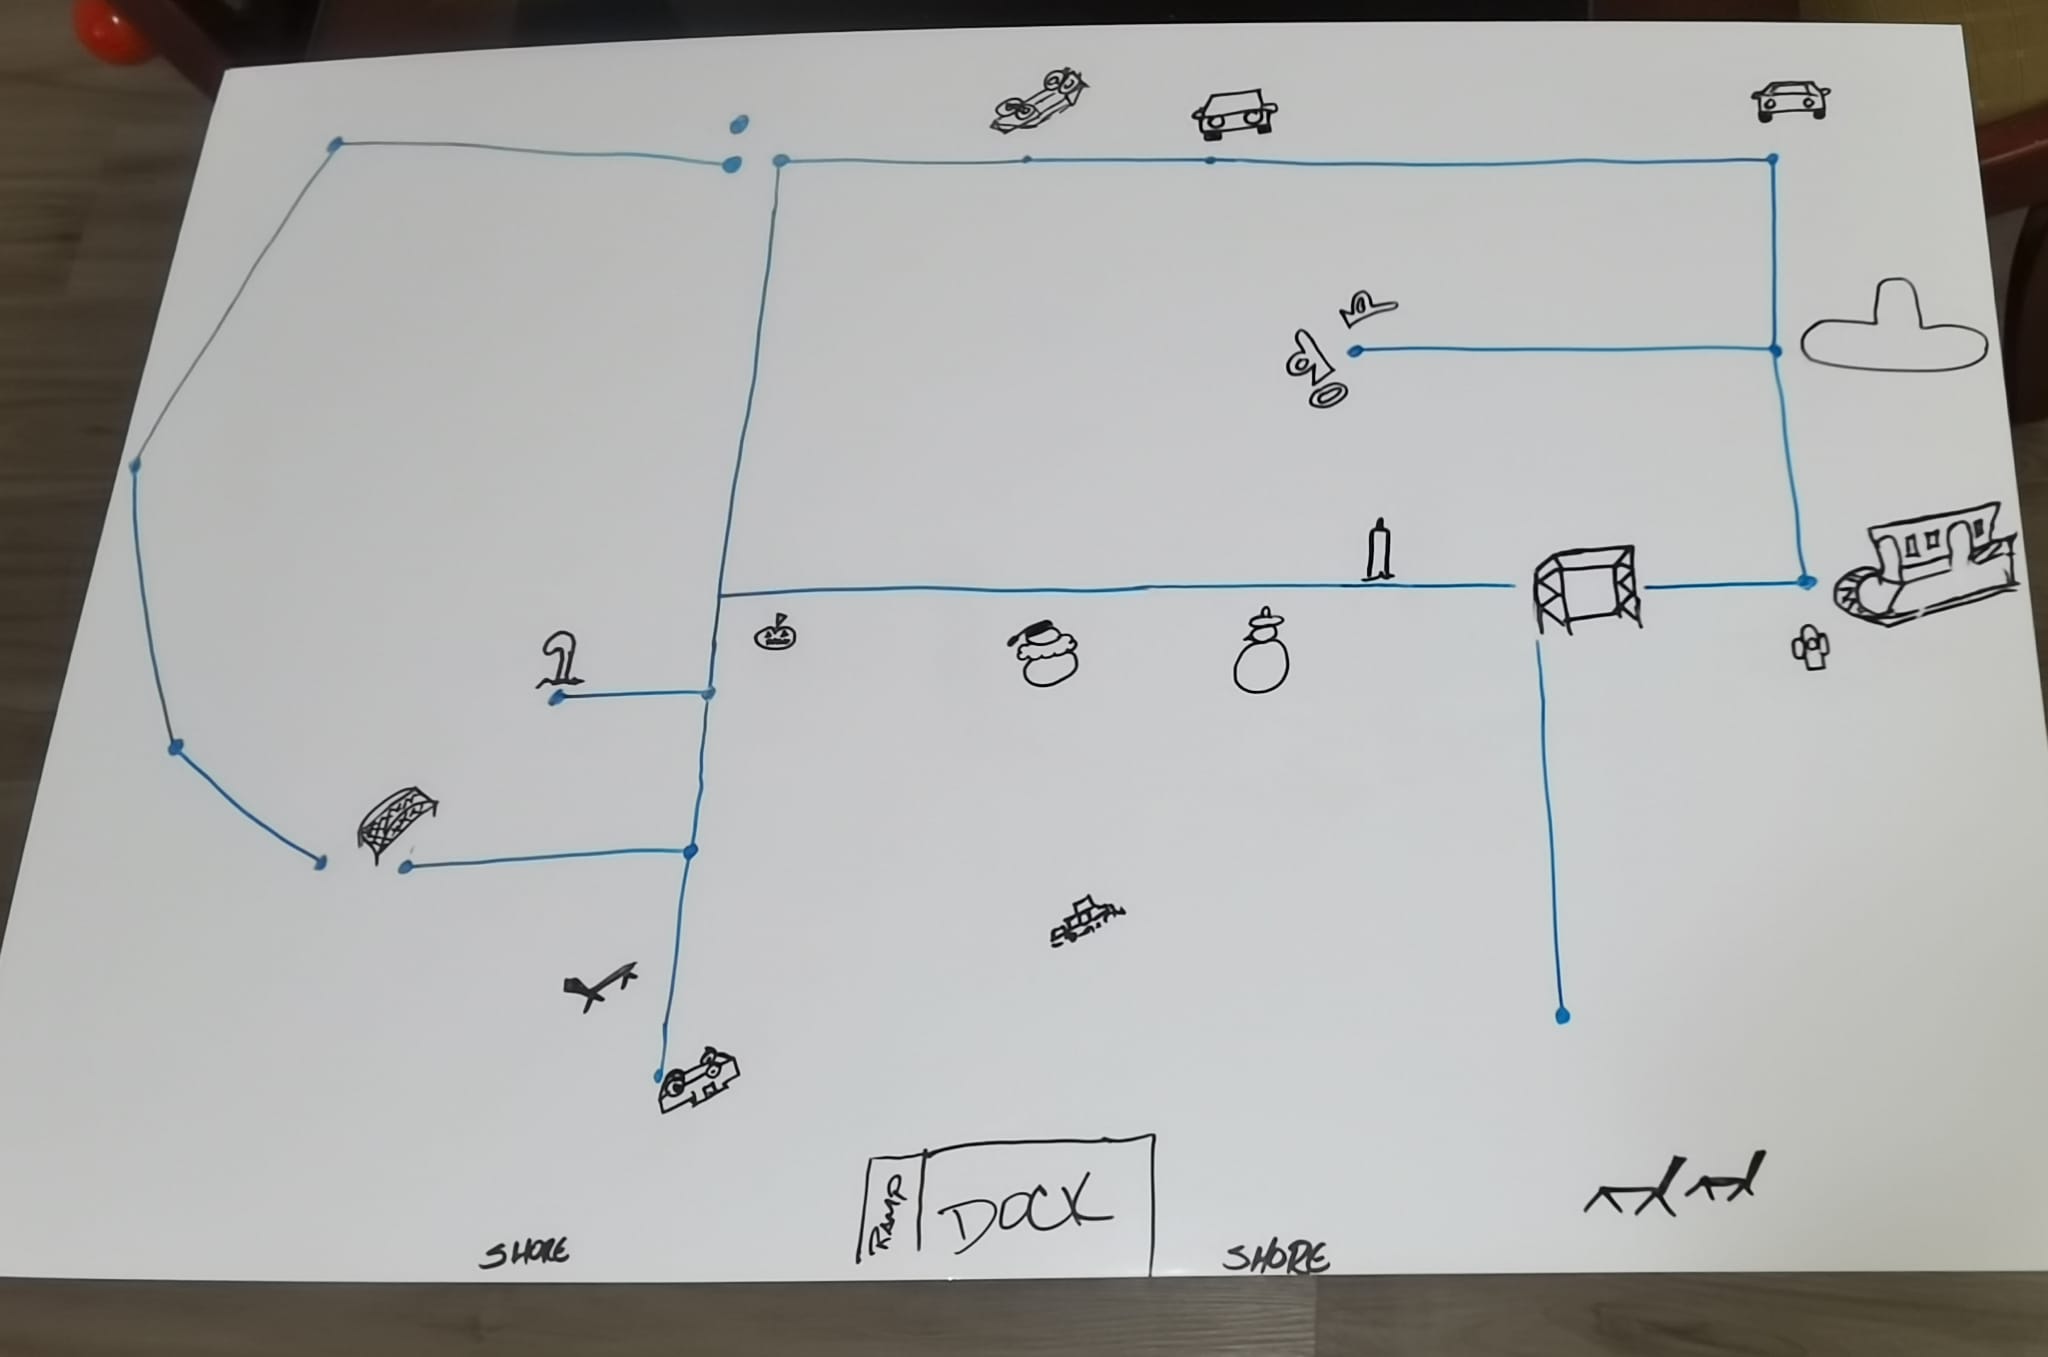 RAMP
DOCK
SHORE
SHORE